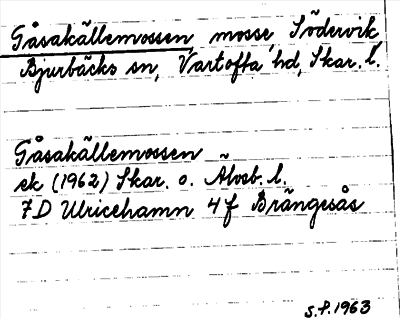 Gåsakällemossen, mosse, Södervik
Bjurbäcks sn, Vartofta hd, Skar. l.
Gåsakällemossen
ek (1962) Skar. o. Älvsb. l.
7D Ulricehamn 4f Brängesås
S.P. 1963